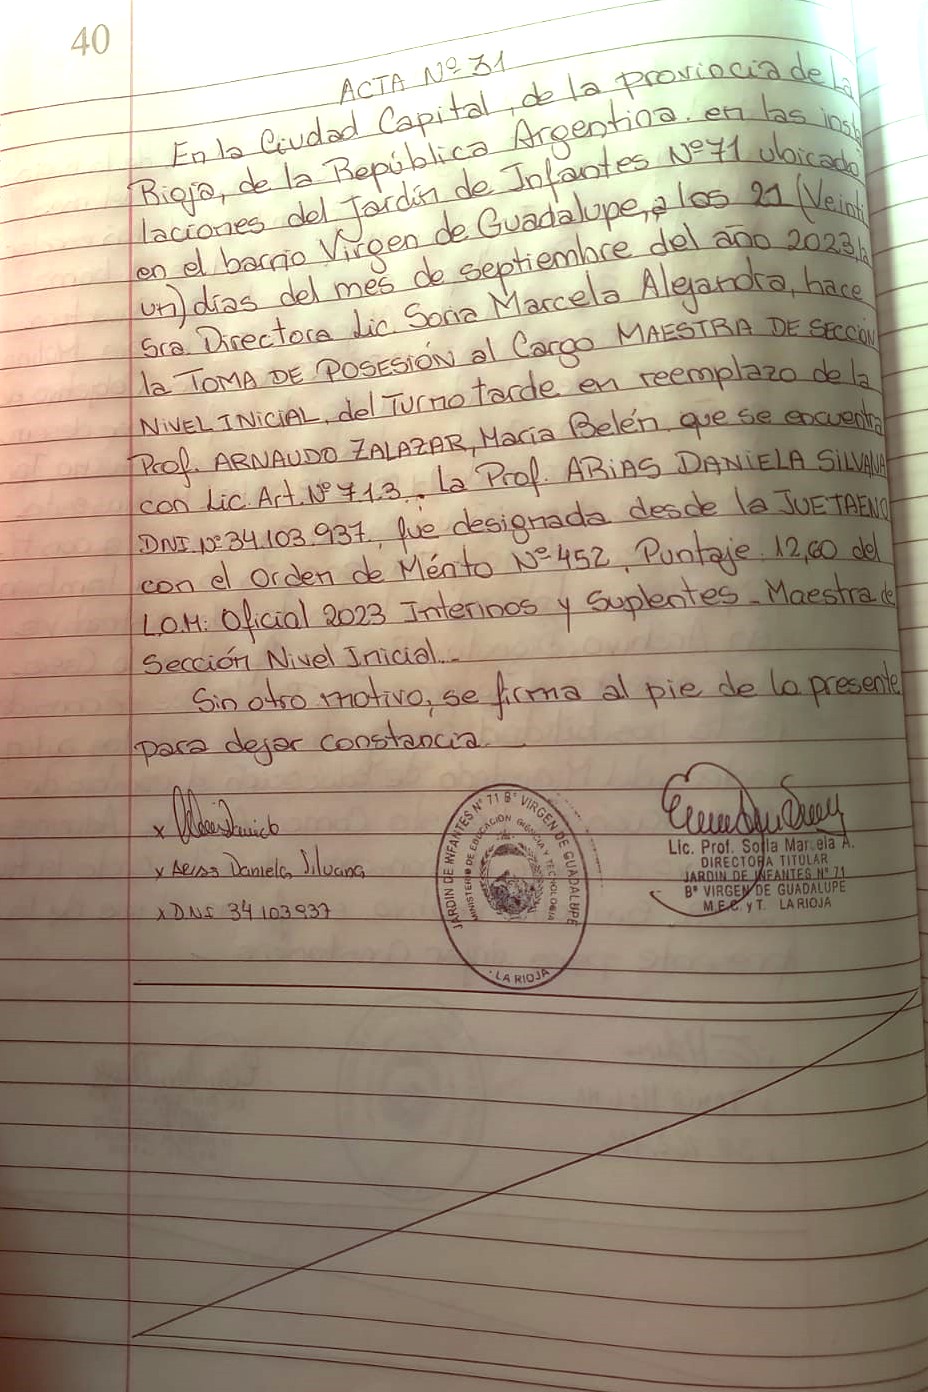 40
ACTA Nº 31
En la Ciudad Capital, de la provincia de La
Rioja, de la República Argentina. en las insta
laciones del Jardín de Infantes Nº 71 ubicado
en el barrio Virgen de Guadalupe, a los 21 (Veinti
un) días del mes de septiembre del año 2023, la
Sra. Directora Lic. Soria Marcela Alejandra, hace
la TOMA DE POSESIÓN al Cargo MAESTRA DE SECCIÓN
NIVEL INICIAL, del Turno tarde en reemplazo de la
Prof. ARNAUDO ZALAZAR, María Belén, que se encuentra
con Lic. Art. Nº 7.1.3. La Prof. ARIAS DANIELA SILVANA
DNI Nº 34.103.937, fue designada desde la JUETAENO
con el Orden de Mérito Nº 452, Puntaje 12,60 del
L.O.M: Oficial 2023 Interinos y Suplentes - Maestra de
Sección Nivel Inicial.-
Sin otro motivo, se firma al pie de la presente
para dejar constancia.-
x
x Arias Daniela Silvana
x DNI 34103937
JARDIN DE INFANTES Nº 71 Bº VIRGEN DE GUADALUPE
MINISTERIO DE EDUCACIÓN CIENCIA Y TECNOLOGIA
- LA RIOJA
Lic. Prof. Soria Marcela A.
DIRECTORA TITULAR
JARDIN DE INFANTES Nº 71
Bº VIRGEN DE GUADALUPE
M.E.C. y T. LA RIOJA